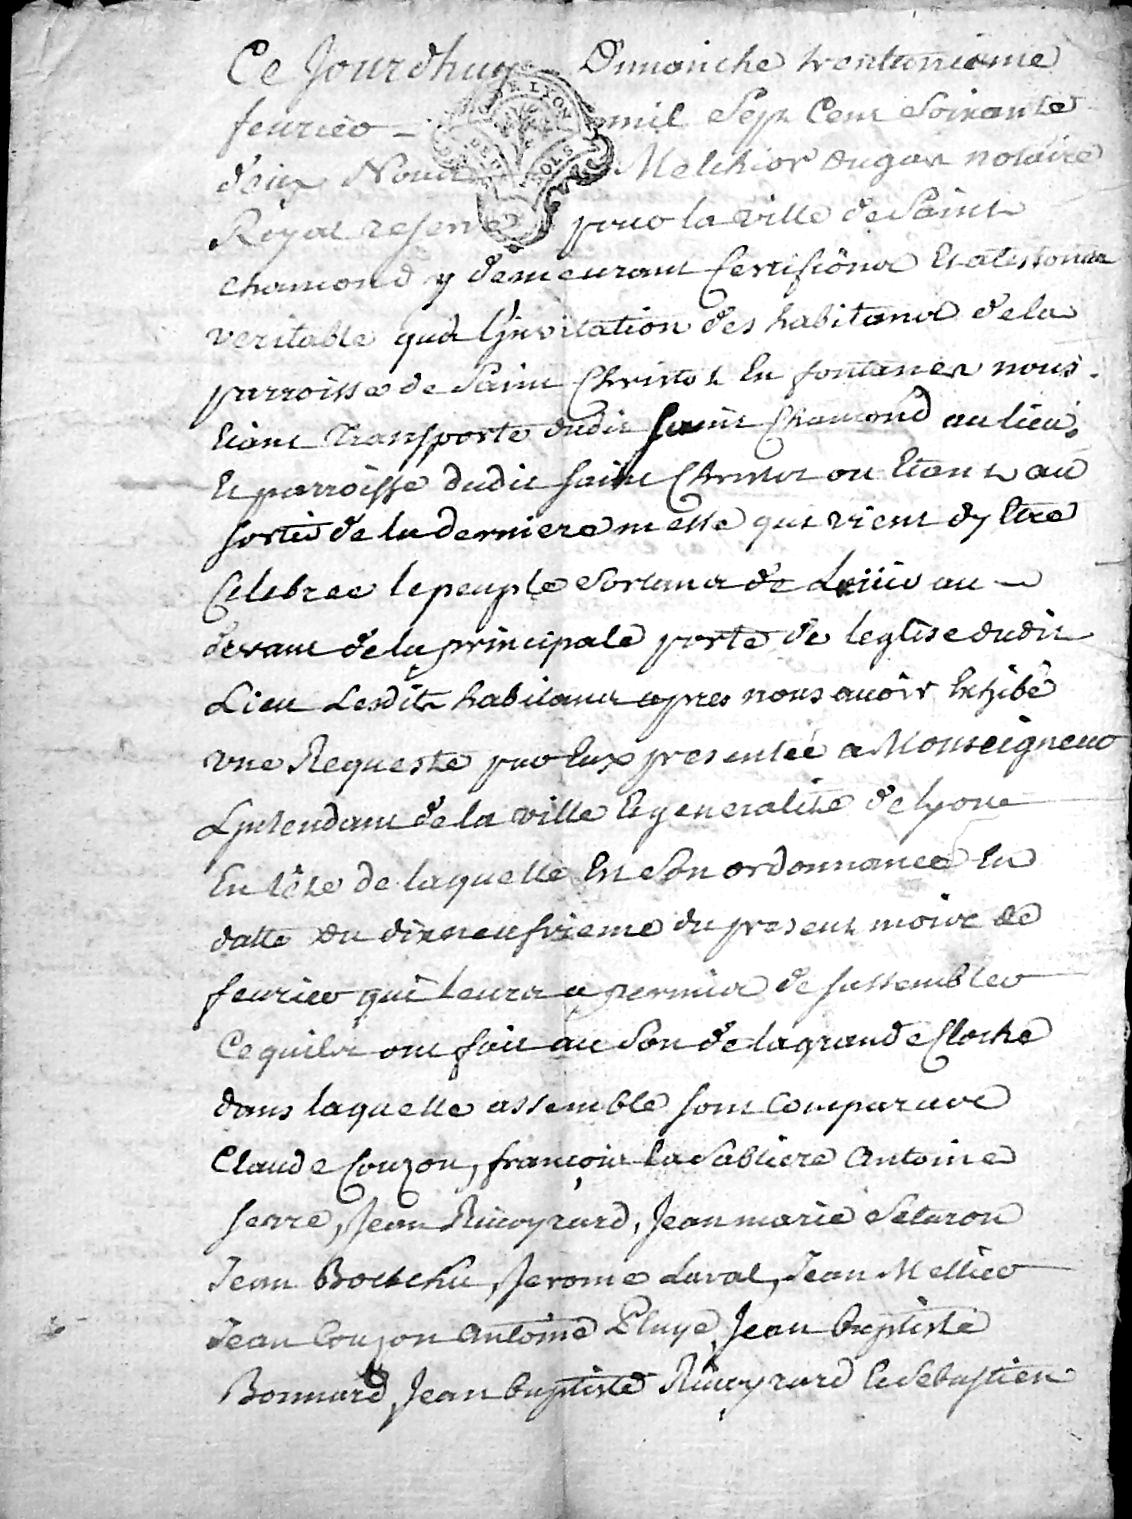 Ce Jourdhuy Dimanche trentunieme
feurier mil Sept Cent Soixante
deux Nous Melchior dugas notaire
Royal reservé pour la ville de Saint
chamond y demeurant Certifions Et attestons
veritable qua Ljnvitation des habitans de la
parroisse de Saint Christot En fontanes nous
Etant Transporte dudit Saint Chamond au lieu
Et parroisse dudit Saint Christot ou Etant au
sortir de la derniere messe qui vient dy Etre
Celebree le peuple Sortant de Liu au
devant de la principale porte de leglise dudit
Lieu Lesdits habitans apres nous avoir Exhibé
une Requeste par Eux presentée a Monseigneur
Ljntendant de la ville Et generalité de lyon
En tête de laquelle Est Son ordonnance En
datte du dixneufvieme du present mois de
feurier qui leurs a permis de sassembler
Ce quils ont fait au Son de la grande Cloche
dans laquelle assemble sont Comparus
Claude Couzon, françois la Sabliere Antoine
serre, Jean Rivoyrard, Jean marie Setaron
Jean Boetchu, Jerome Laval, Jean Mellier
Jean Couzon Antoine Pluye, Jean baptiste
Bonnard, Jean baptiste Rivoyrard Et Sebastien
DE LYON
SOLS